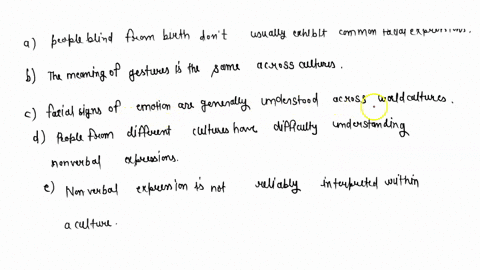 a) people blind from birth don't usually exhibit common facial expressions.
b) The meaning of gestures is the same across cultures.
c) facial signs of emotion are generally understood across world cultures.
d) People from different cultures have difficulty understanding
nonverbal expressions.
e) Nonverbal expression is not reliably interpreted within
a culture.